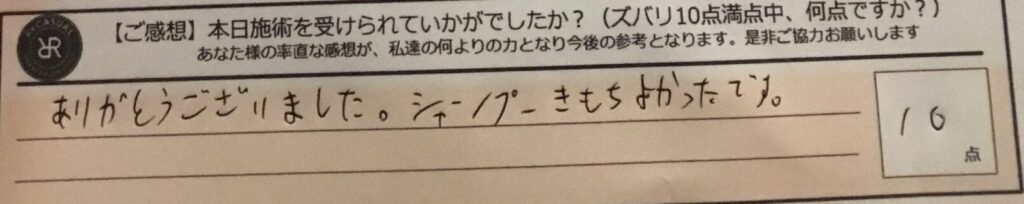 【ご感想】本日施術を受けられていかがでしたか？（ズバリ10点満点中、何点ですか？）
あなた様の率直な感想が、私達の何よりの力となり今後の参考となります。是非ご協力お願いします
ありがとうございました。シャンプーきもちよかったです。
10
点